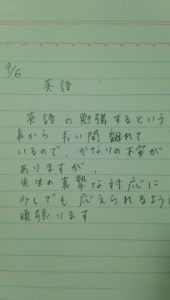 9/6
英語
英語の勉強するという
事から長い間離れて
いるので、かなりの不安が
ありますが、
先生の真摯な対応に
少しでも応えられるように
頑張ります